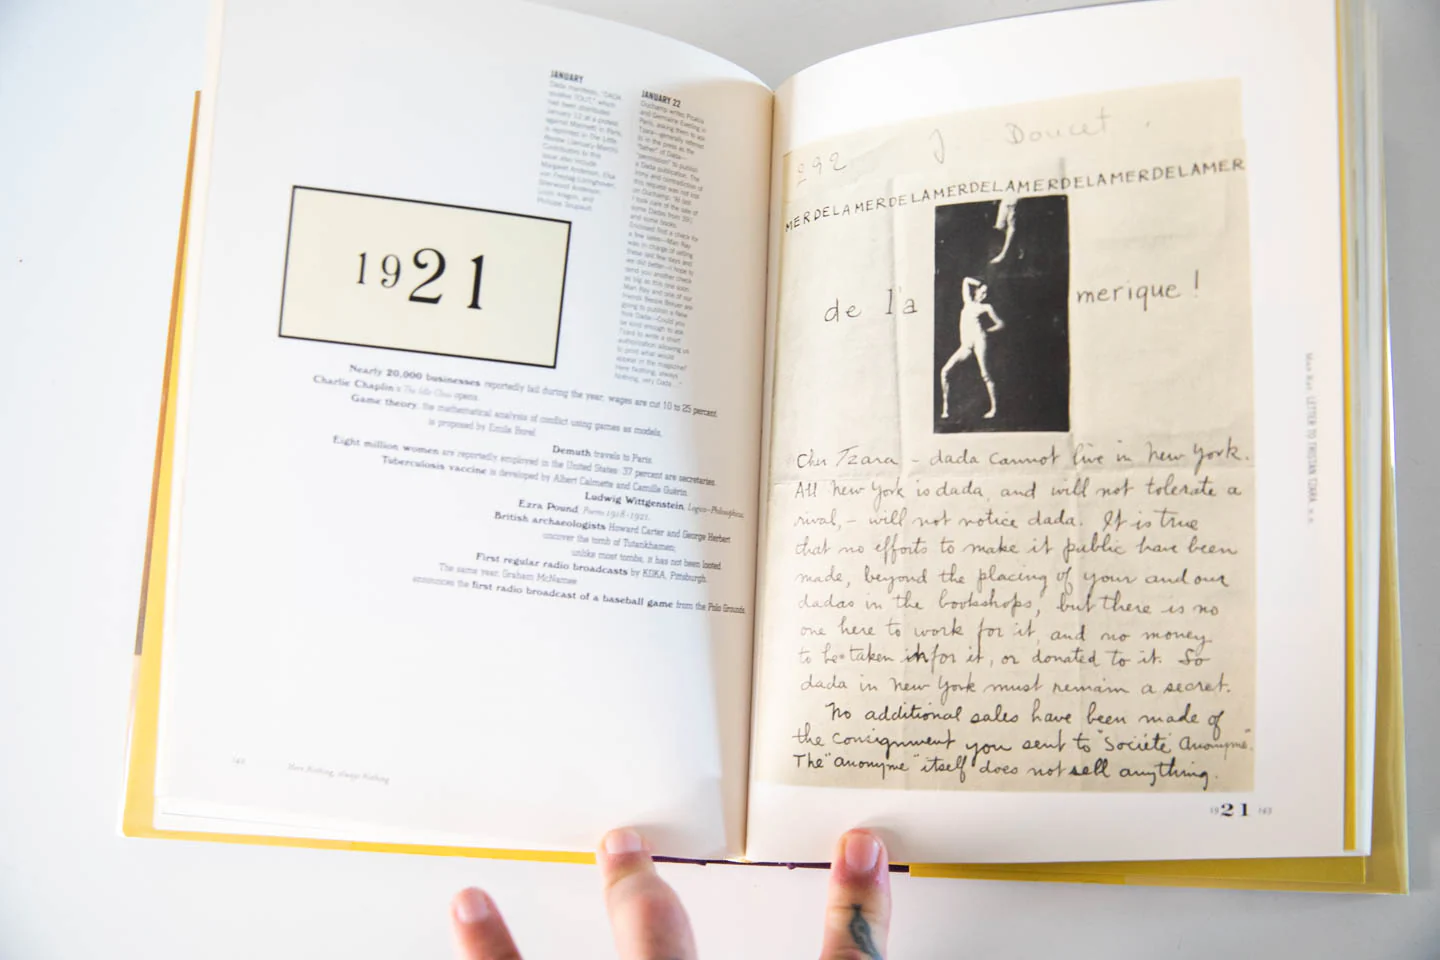 JANUARY
Dada manifesto, "DADA
soulève TOUT," which
had been distributed
January 12 at a protest
against Marinetti in Paris,
is reprinted in The Little
Review (January–March).
Contributors to this
issue also include
Margaret Anderson, Elsa
von Freytag-Loringhoven,
Sherwood Anderson,
Louis Aragon, and
Philippe Soupault.
JANUARY 22
Duchamp writes Picabia
and Germaine Everling in
Paris, asking them to ask
Tzara—generally referred
to in the press as the
"father" of Dada—
"permission" to publish
a Dada publication. The
irony and contradiction of
this request was not lost
on Duchamp: "At last
I took care of the sale of
some Dadas from 391
and some books.
Enclosed find a check for
a few sales—Man Ray
was in charge of selling
these last few days and
we did better—I hope to
send you another check
as big as this one soon.
Man Ray and one of our
friends Bessie Breuer are
going to publish a New
York Dada—Could you
be kind enough to ask
Tzara to write a short
authorization allowing us
to print what would
appear in the magazine?
Here Nothing, always
Nothing, very Dada..."
1921
Nearly 20,000 businesses reportedly fail during the year; wages are cut 10 to 25 percent.
Charlie Chaplin's The Idle Class opens.
Game theory, the mathematical analysis of conflict using games as models,
is proposed by Emile Borel.
Demuth travels to Paris.
Eight million women are reportedly employed in the United States: 37 percent are secretaries.
Tuberculosis vaccine is developed by Albert Calmette and Camille Guérin.
Ludwig Wittgenstein, Logico-Philosophicus.
Ezra Pound, Poems 1918-1921.
British archaeologists Howard Carter and George Herbert
uncover the tomb of Tutankhamen;
unlike most tombs, it has not been looted.
First regular radio broadcasts by KDKA, Pittsburgh.
The same year, Graham McNamee
announces the first radio broadcast of a baseball game from the Polo Grounds.
142 Here Nothing, always Nothing
292 J. Doucet.
MERDELAMERDELAMERDELAMERDELAMERDELAMER
de l'a merique !
Cher Tzara – dada cannot live in New York.
All New York is dada, and will not tolerate a
rival, – will not notice dada. It is true
that no efforts to make it public have been
made, beyond the placing of your and our
dadas in the bookshops, but there is no
one here to work for it, and no money
to be taken in for it, or donated to it. So
dada in New York must remain a secret.
No additional sales have been made of
the consignment you sent to "Société Anonyme".
The "anonyme" itself does not sell anything.
Man Ray LETTER TO TRISTAN TZARA
1921 143